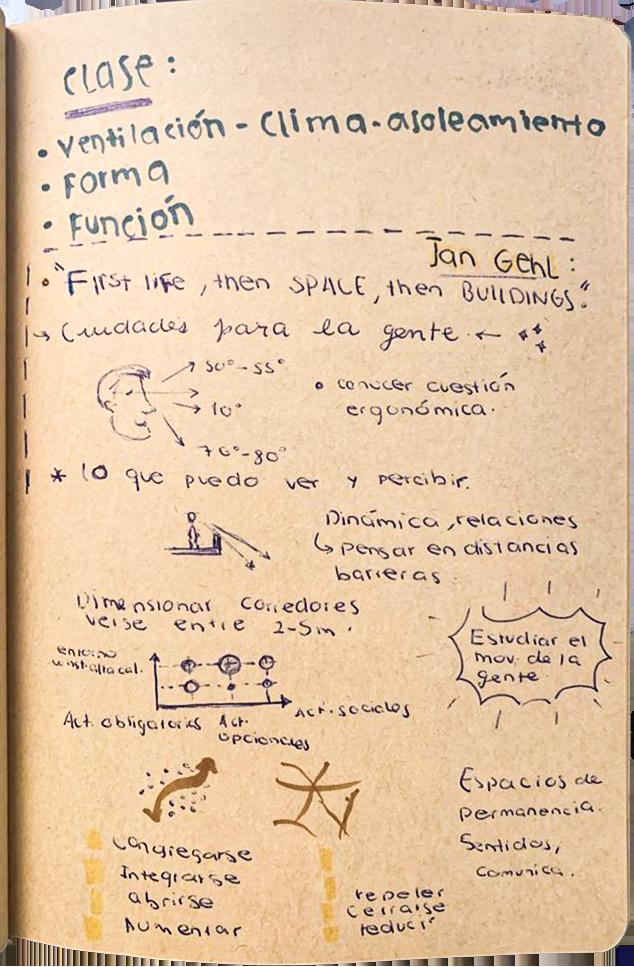 Clase:
• Ventilación - Clima - asoleamiento
• Forma
• Función
Jan Gehl:
• "First life, then SPACE, then BUILDINGS."
↳ Ciudades para la gente ←
50°-55°
10°
70°-80°
• conocer cuestión
ergonómica.
* lo que puedo ver y percibir.
Dinámica, relaciones
↳ pensar en distancias
barreras
Dimensionar corredores
verse entre 2-5m.
Estudiar el
mov. de la
gente
entorno
Act. sociales
Act. obligatorias
Act.
opcionales
Espacios de
permanencia.
Sentidos,
comunica.
Congregarse
Integrarse
abrirse
Aumentar
repeler
Cerrarse
reducir